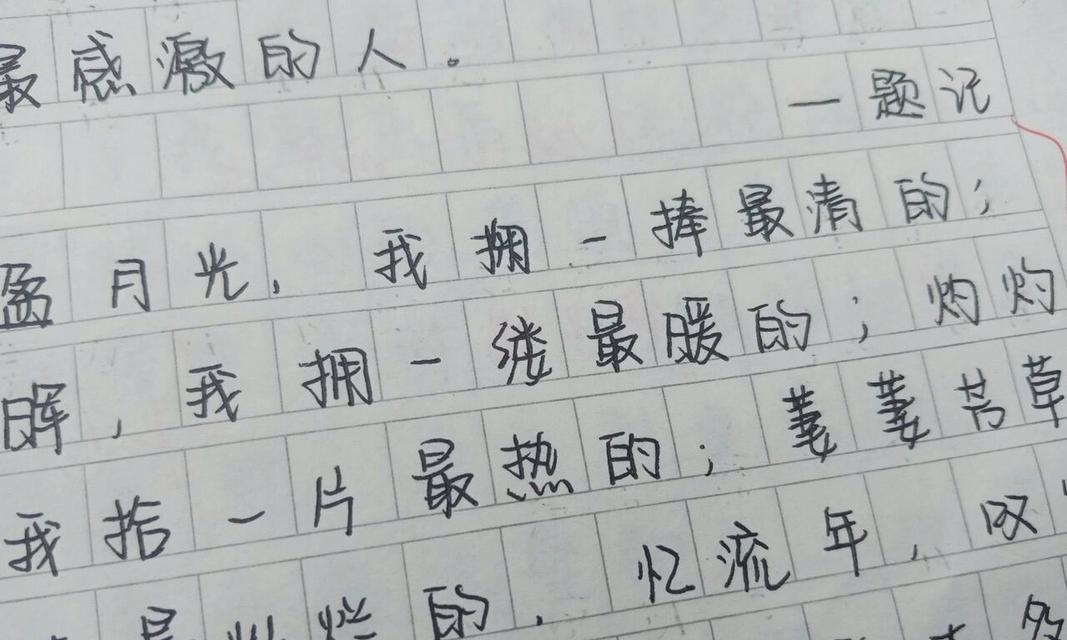 最感激的人。
—题记
盈月光，我拥一捧最清的；
晖，我拥一缕最暖的；灼灼
我拾一片最热的；萋萋芳草
最灿烂的，忆流年，叹